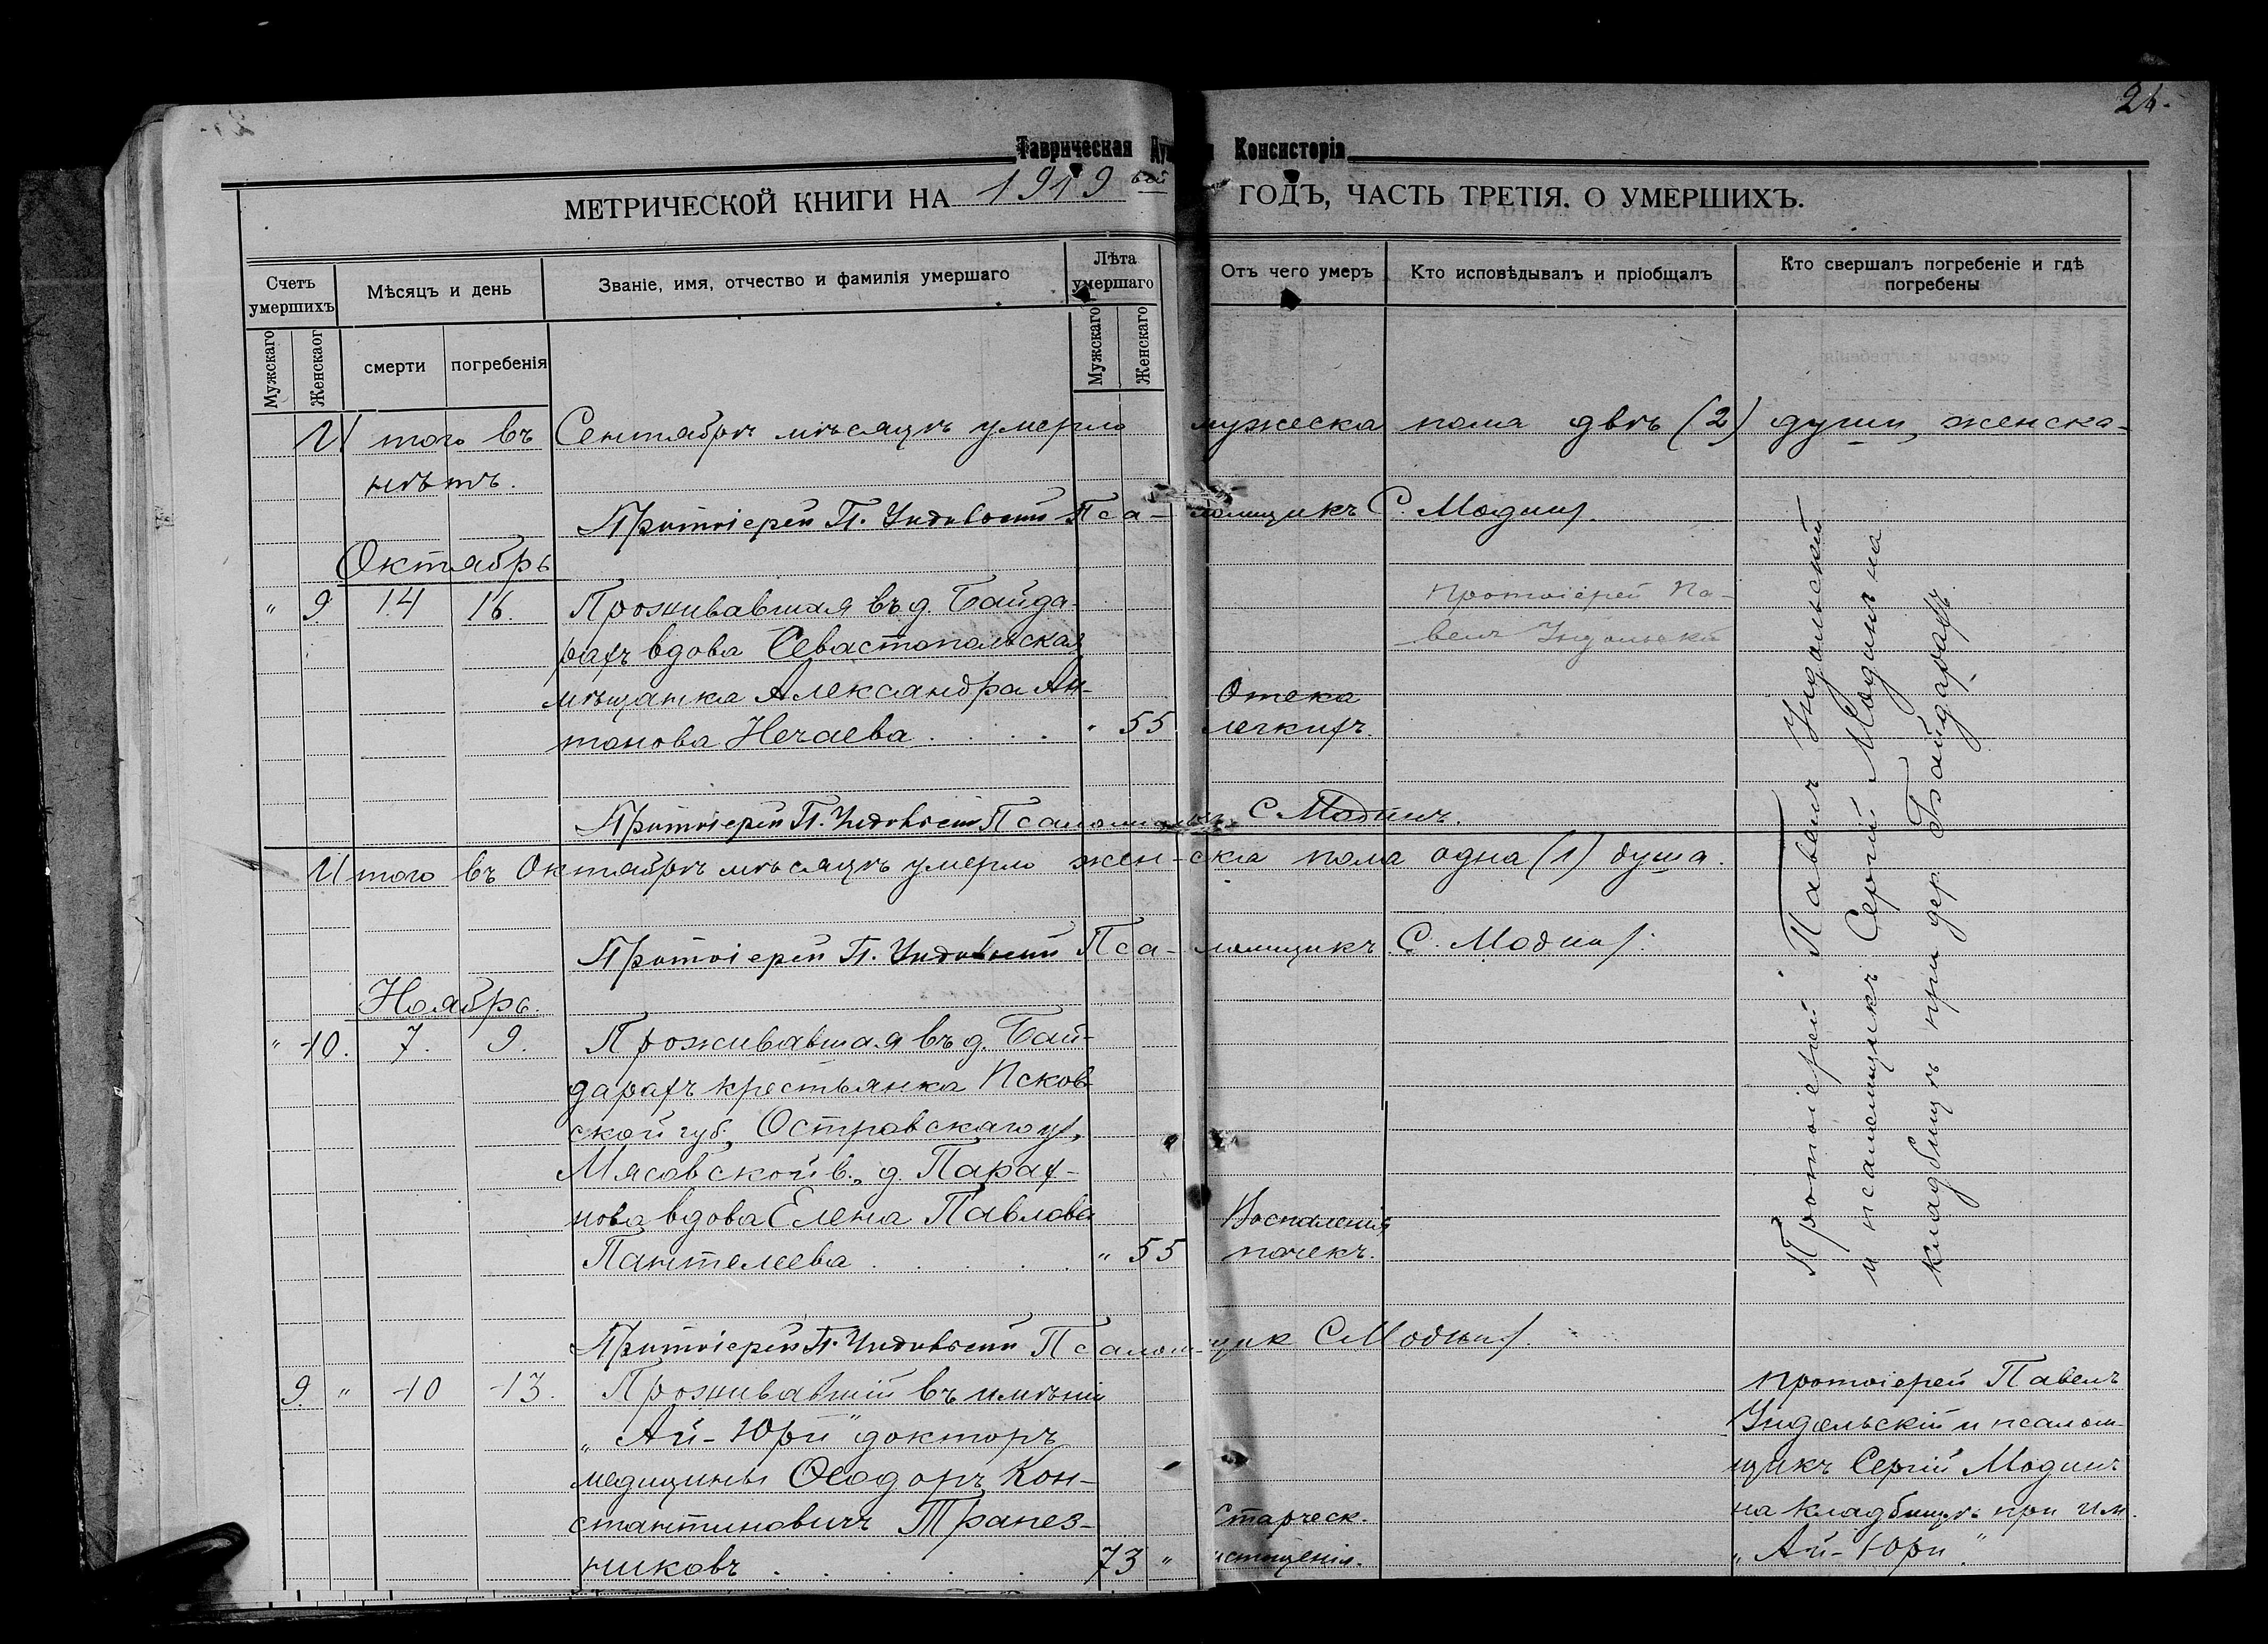 26.
Таврическая Консисторія
МЕТРИЧЕСКОЙ КНИГИ НА 1919 ГОДЪ, ЧАСТЬ ТРЕТІЯ. О УМЕРШИХЪ.
Счетъ умершихъ
Мѣсяцъ и день
Званіе, имя, отчество и фамилія умершаго
Лѣта умершаго
Отъ чего умеръ
Кто исповѣдывалъ и пріобщалъ
Кто свершалъ погребеніе и гдѣ погребены
Мужскаго
Женскаог
смерти
погребенія
Мужскаго
Женскаго
Итого въ Сентябрѣ мѣсяцѣ умерло мужеска пола двѣ (2) души, женска-
нѣтъ.
Протоіерей П. Индольскій Псаломщикъ С. Модинъ.
Октябрь
" 9 14 16. Проживавшая въ д. Байда-
рахъ вдова Севастопольская
мѣщанка Александра Ан-
тонова Нечаева . . . . " 55
Отека
легкихъ.
Протоіерей Па-
велъ Индольскій
Протоіерей П. Индольскій Псаломщикъ С. Модинъ.
Итого въ Октябрѣ мѣсяцѣ умерло женска пола одна (1) душа.
Протоіерей П. Индольскій Псаломщикъ С. Модинъ.
Ноябрь.
" 10. 7. 9. Проживавшая въ д. Бай-
дарахъ крестьянка Псков-
ской губ., Островскаго у.,
Мясовской в., д. Парах-
нова, вдова Елена Павлова
Пантелеева . . . . . " 55
Воспаленія
почекъ.
Протоіерей Павелъ Индольскій
и псаломщикъ Сергій Модинъ на
кладбищѣ при дер. Байдарахъ
Протоіерей П. Индольскій Псаломщик С Модинъ.
9. " 10 13. Проживавшій въ имѣніи
„Ай-Юри" докторъ
медицины Ѳеодоръ Кон-
стантиновичъ Трапез-
никовъ . . . . . 73 "
Старческ.
истощенія.
протоіерей Павелъ
Индольскій и псалом-
щикъ Сергій Модинъ
на кладбищѣ при им.
„Ай-Юри".